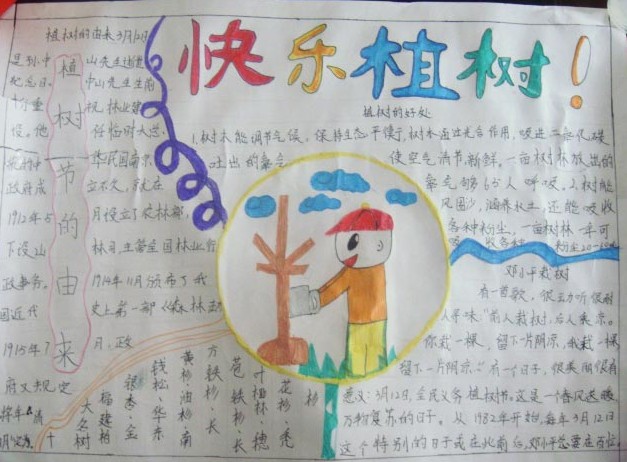 快乐植树！
植树节的由来
植树的由来3月12日
是孙中山先生逝世
纪念日。中山先生生前
十分重视林业建
设。他任临时大总
华民国南京
政府成立不久，就在
1912年5月设立了农林部，
下设山林司，主管全国林业行
政事务。1914年11月颁布了我
国近代史上第一部《森林法》
1915年7月，政
府又规定
植树的好处
1.树木能调节气候，保持生态平衡，树木通过光合作用，吸进二氧化碳
吐出的氧气使空气清节，新鲜。一亩树林放出的
氧气够65人呼吸，2.树能
风固沙，涵养水土，还能吸收
各种粉尘，一亩树林一年可
收各种粉尘20-60
邓小平栽树
有一首歌，很
人寻味"前人栽树，后人乘凉。
你栽一棵，留下一片阴凉，我栽一棵
留下一片阴凉"
意义：3月12日，全民义务植树节。这是一个春风送暖，
万物复苏的日子。从1982年开始，每年3月12日
这个特别的日子
杉
花杉、秃
叶植林、穗
苞铁杉、长
方铁杉、长
黄杉、油杉、南
钱松、华东
银杏、金
福建柏
大名树
十